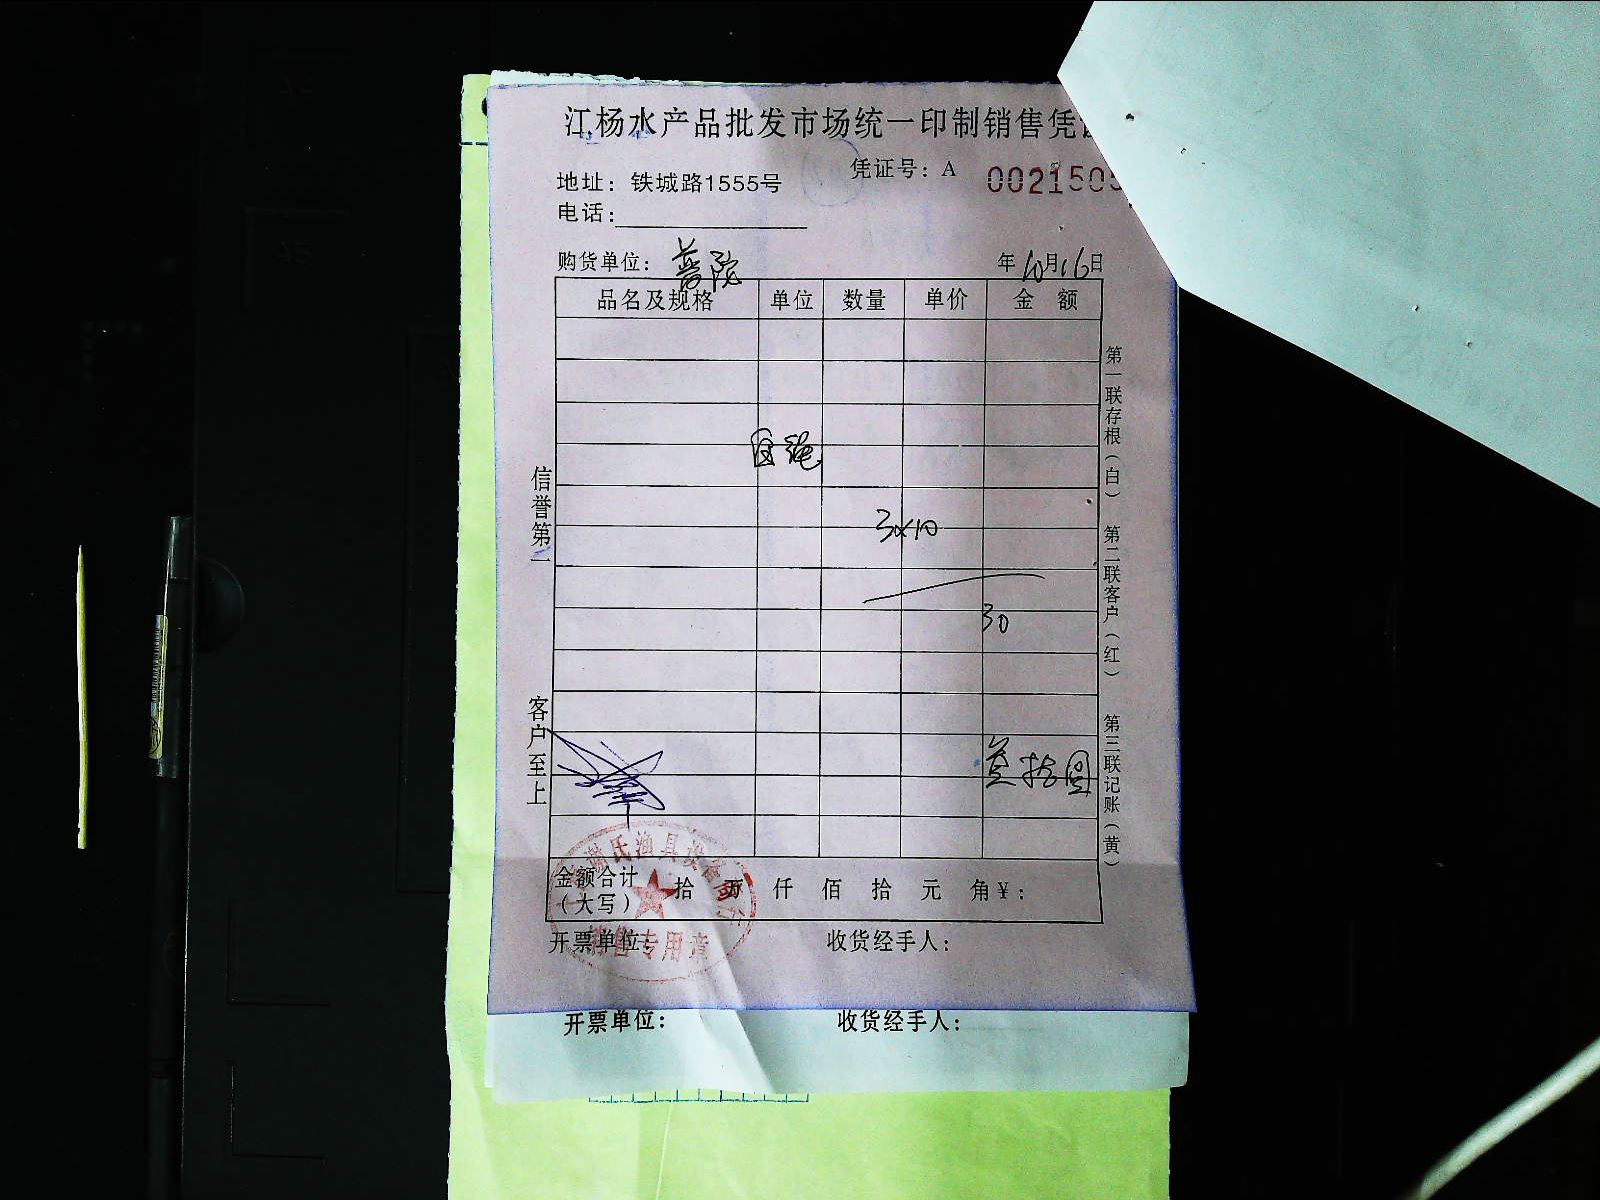 江杨水产品批发市场统一印制销售凭
凭证号：A 0021505
地址：铁城路1555号
电话：
购货单位：普陀 年10月16日
品名及规格 单位 数量 单价 金额
绳
3×10
30
叁拾圆
金额合计（大写） 拾 万 仟 佰 拾 元 角 ¥：
开票单位： 收货经手人：
信誉第一
客户至上
第一联存根（白） 第二联客户（红） 第三联记账（黄）
氏渔具设备
销售专用章
开票单位： 收货经手人：